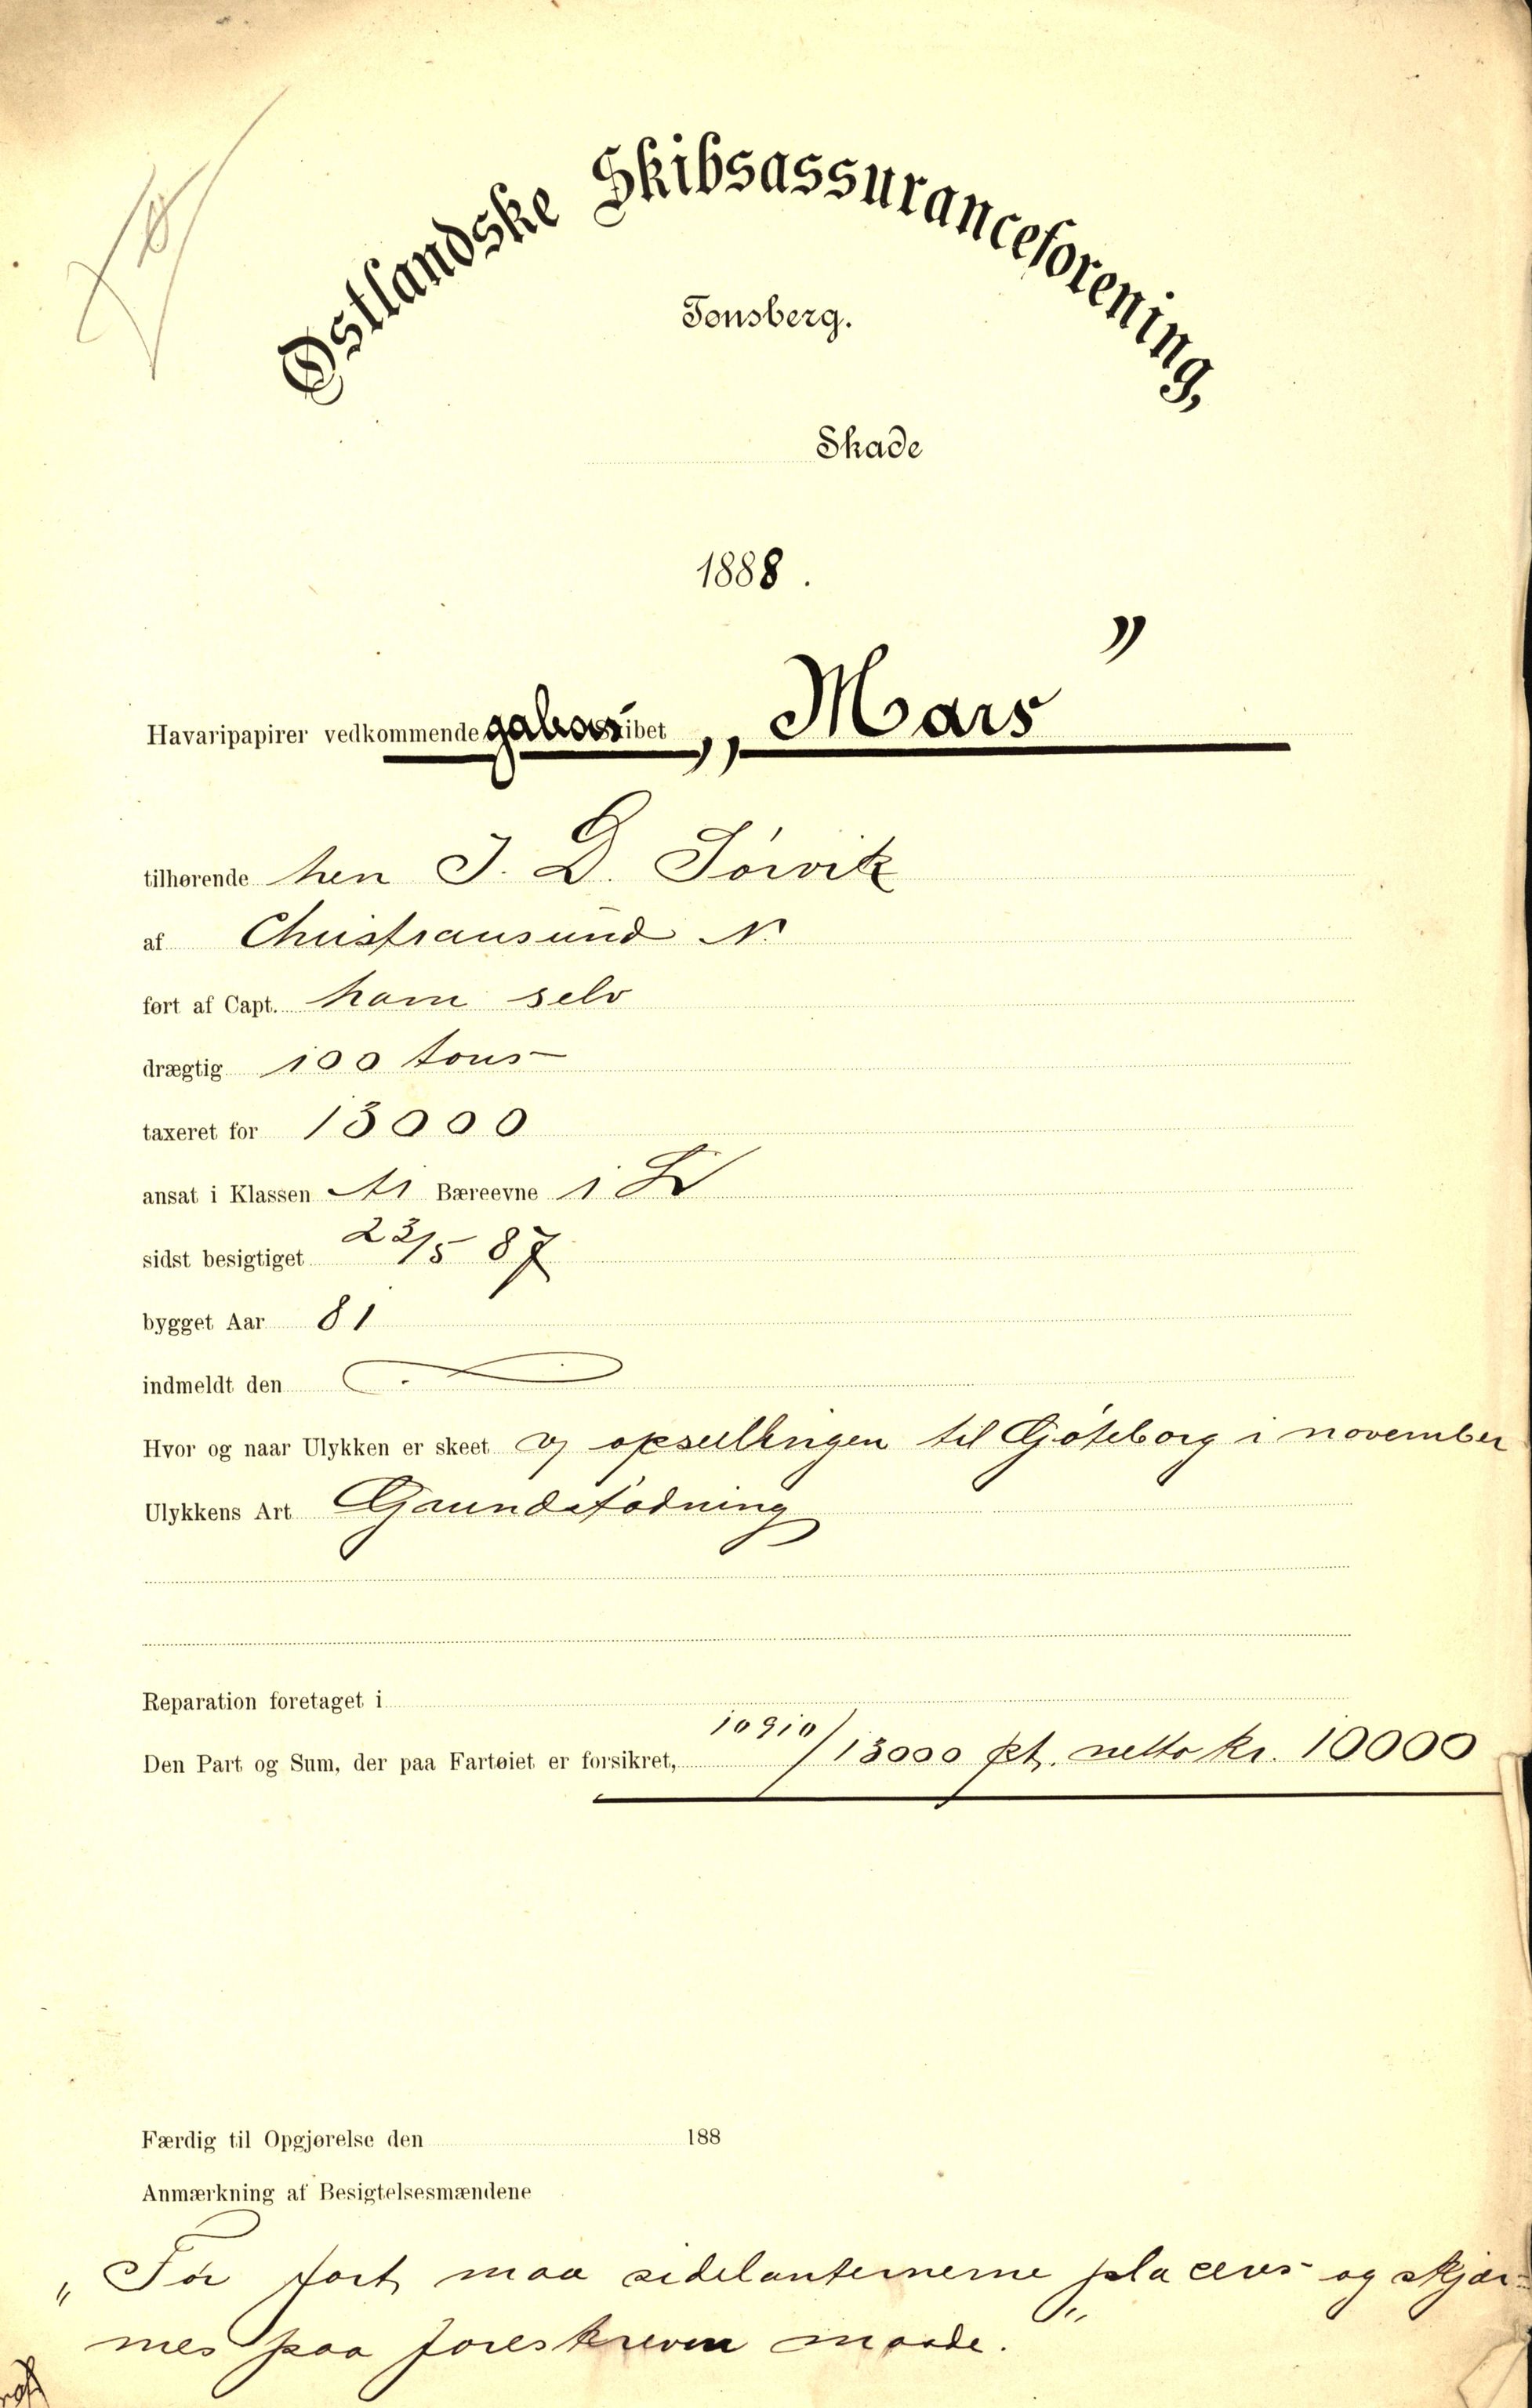 Østlandske Skibsassuranceforening,
Tønsberg.
Skade
1888.
Havaripapirer vedkommende galeas skibet „Mars”
tilhørende herr J. D. Sørvik
af Christiansund N.
ført af Capt. ham selv
drægtig 100 tons
taxeret for 13000
ansat i Klassen A1 Bæreevne 1
sidst besigtiget 23/5 87
bygget Aar 81
indmeldt den
Hvor og naar Ulykken er skeet opseilingen til Gjøteborg i november
Ulykkens Art Grundstødning
Reparation foretaget i
Den Part og Sum, der paa Fartøiet er forsikret, 10910/13000 pt. netto kr. 10000
Færdig til Opgjørelse den 188
Anmærkning af Besigtelsesmændene
„Før fart maa sidelanternerne placeres og skjær-
mes paa foreskreven maade.”